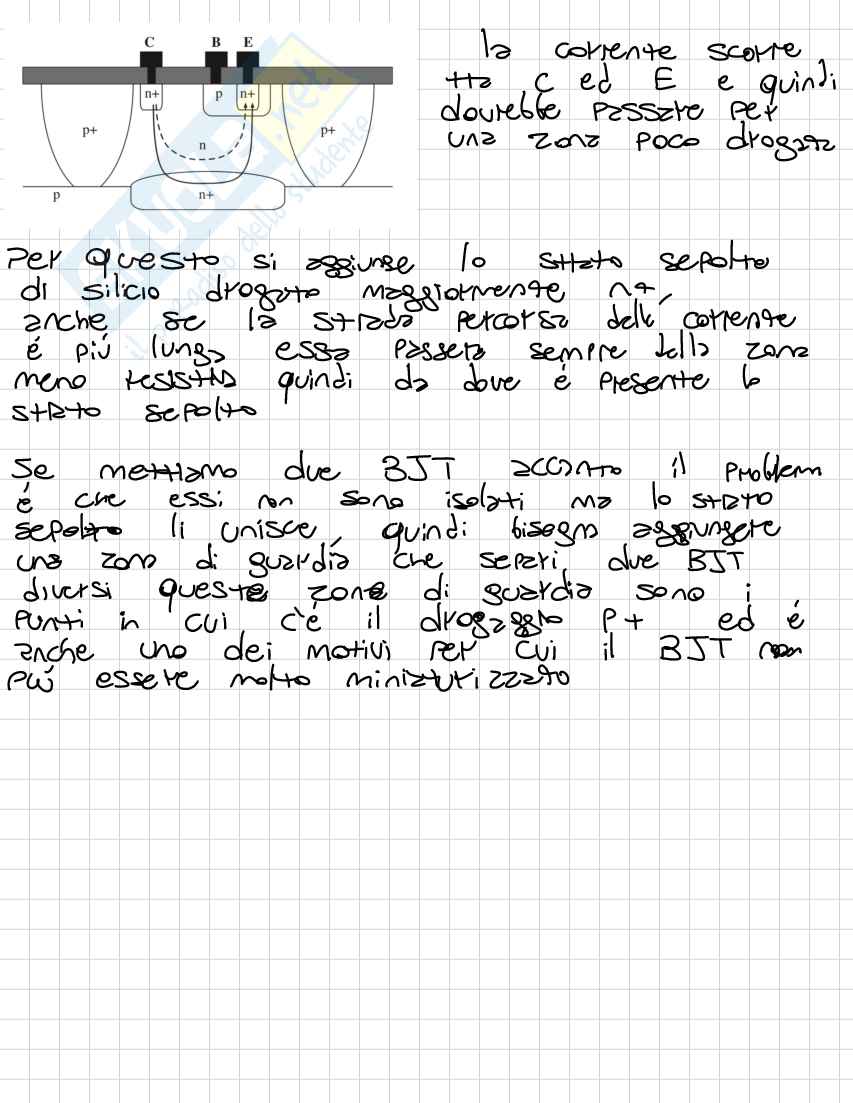 C B E
n+ p n+
p+ n p+
p n+
la corrente scorre
tra C ed E e quindi
dovrebbe passare per
una zona poco drogata
Per questo si aggiunge lo strato sepolto
di silicio drogato maggiormente n+
anche se la strada percorsa dalla corrente
é piú lunga essa passerà sempre dalla zona
meno resistiva quindi da dove é presente lo
strato sepolto
Se mettiamo due BJT accanto il problema
é che essi non sono isolati ma lo strato
sepolto li unisce, quindi bisogna aggiungere
una zona di guardia che separi due BJT
diversi queste zone di guardia sono i
punti in cui c'é il drogaggio p+ ed é
anche uno dei motivi per cui il BJT non
puó essere molto miniaturizzato
SKUOLA.net
il paradiso dello studente